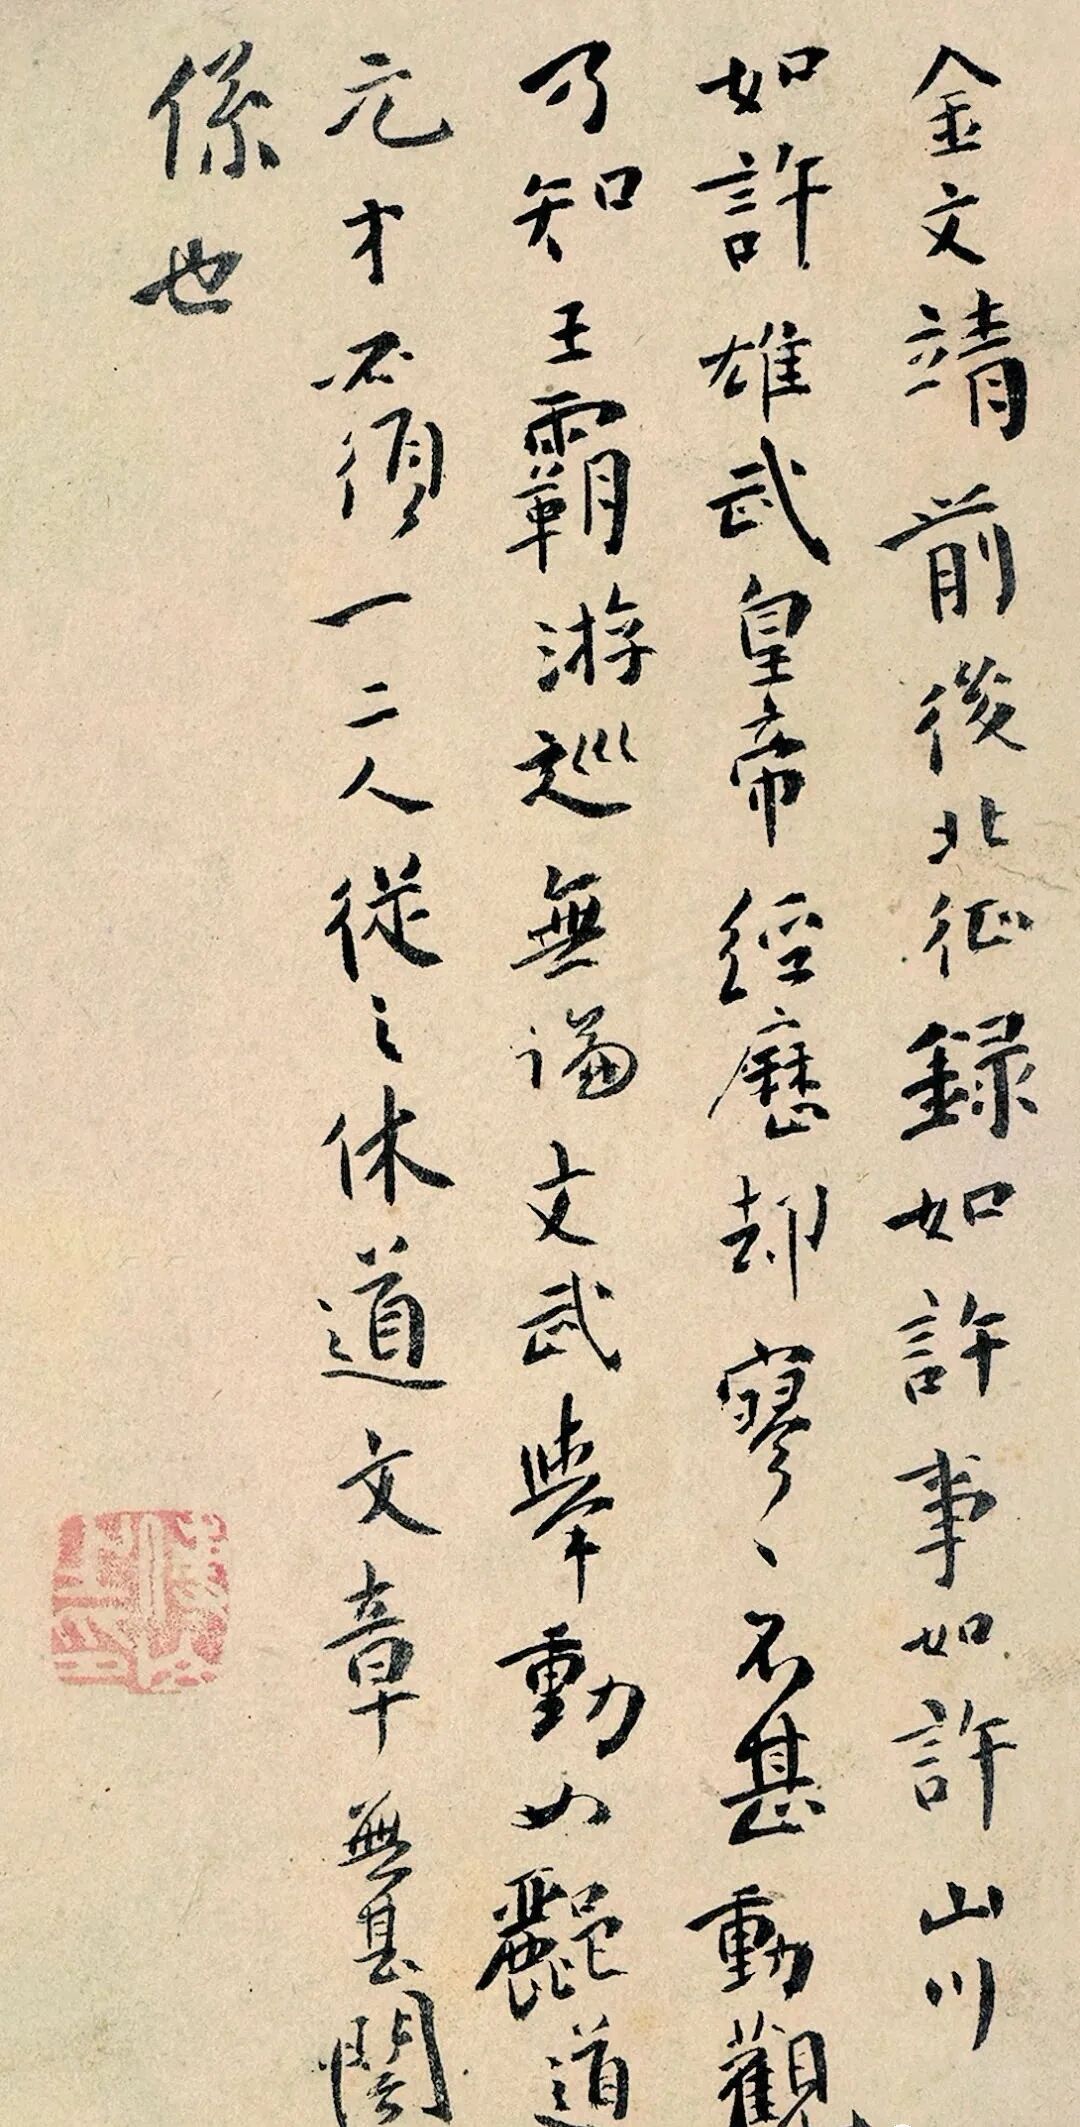 金文靖前後北征録如許事如許山川
如許雄武皇帝經歷却寥〻不甚動觀
乃知王霸游巡無論文武舉動必酈道
元才不須一二人從之休道文章無甚関
係也